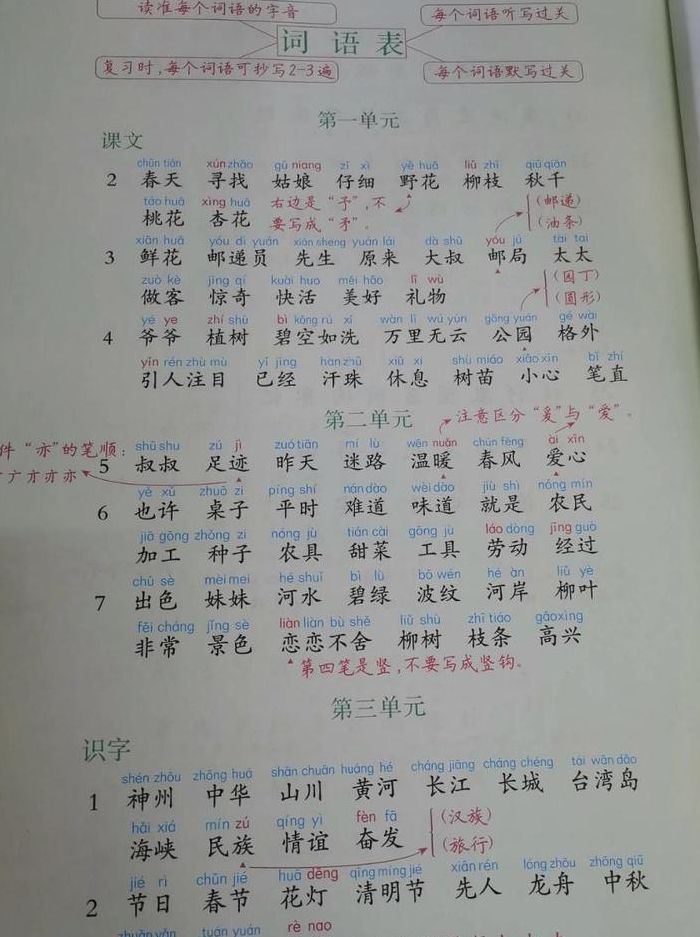 读准每个词语的字音
每个词语听写过关
词语表
复习时,每个词语可抄写2-3遍
每个词语默写过关
第一单元
课文
chūn tiān xún zhǎo gū niang zǐ xì yě huā liǔ zhī qiū qiān
2 春天 寻找 姑娘 仔细 野花 柳枝 秋千
táo huā xìng huā
桃花 杏花
右边是“予”,不
要写成“矛”。
(邮递)
(油条)
xiān huā yóu dì yuán xiān sheng yuán lái dà shū yóu jú tài tai
3 鲜花 邮递员 先生 原来 大叔 邮局 太太
zuò kè jīng qí kuài huo měi hǎo lǐ wù
做客 惊奇 快活 美好 礼物
(园丁)
(圆形)
yé ye zhí shù bì kōng rú xǐ wàn lǐ wú yún gōng yuán gé wài
4 爷爷 植树 碧空如洗 万里无云 公园 格外
yǐn rén zhù mù yǐ jīng hàn zhū xiū xi shù miáo xiǎo xīn bǐ zhí
引人注目 已经 汗珠 休息 树苗 小心 笔直
第二单元
注意区分“爰”与“爱”。
件“亦”的笔顺:
亠亣亦亦
shū shu zú jì zuó tiān mí lù wēn nuǎn chūn fēng ài xīn
5 叔叔 足迹 昨天 迷路 温暖 春风 爱心
yě xǔ zhuō zi píng shí nán dào wèi dào jiù shì nóng mín
6 也许 桌子 平时 难道 味道 就是 农民
jiā gōng zhǒng zi nóng jù tián cài gōng jù láo dòng jīng guò
加工 种子 农具 甜菜 工具 劳动 经过
chū sè mèi mei hé shuǐ bì lǜ bō wén hé àn liǔ yè
7 出色 妹妹 河水 碧绿 波纹 河岸 柳叶
fēi cháng jǐng sè liàn liàn bù shě liǔ shù zhī tiáo gāo xìng
非常 景色 恋恋不舍 柳树 枝条 高兴
第四笔是竖,不要写成竖钩。
第三单元
识字
shén zhōu zhōng huá shān chuān huáng hé cháng jiāng cháng chéng tái wān dǎo
1 神州 中华 山川 黄河 长江 长城 台湾岛
hǎi xiá mín zú qíng yì fèn fā
海峡 民族 情谊 奋发
(汉族)
(旅行)
jié rì chūn jié huā dēng qīng míng jié xiān rén lóng zhōu zhōng qiū
2 节日 春节 花灯 清明节 先人 龙舟 中秋
tuán yuán rè nao